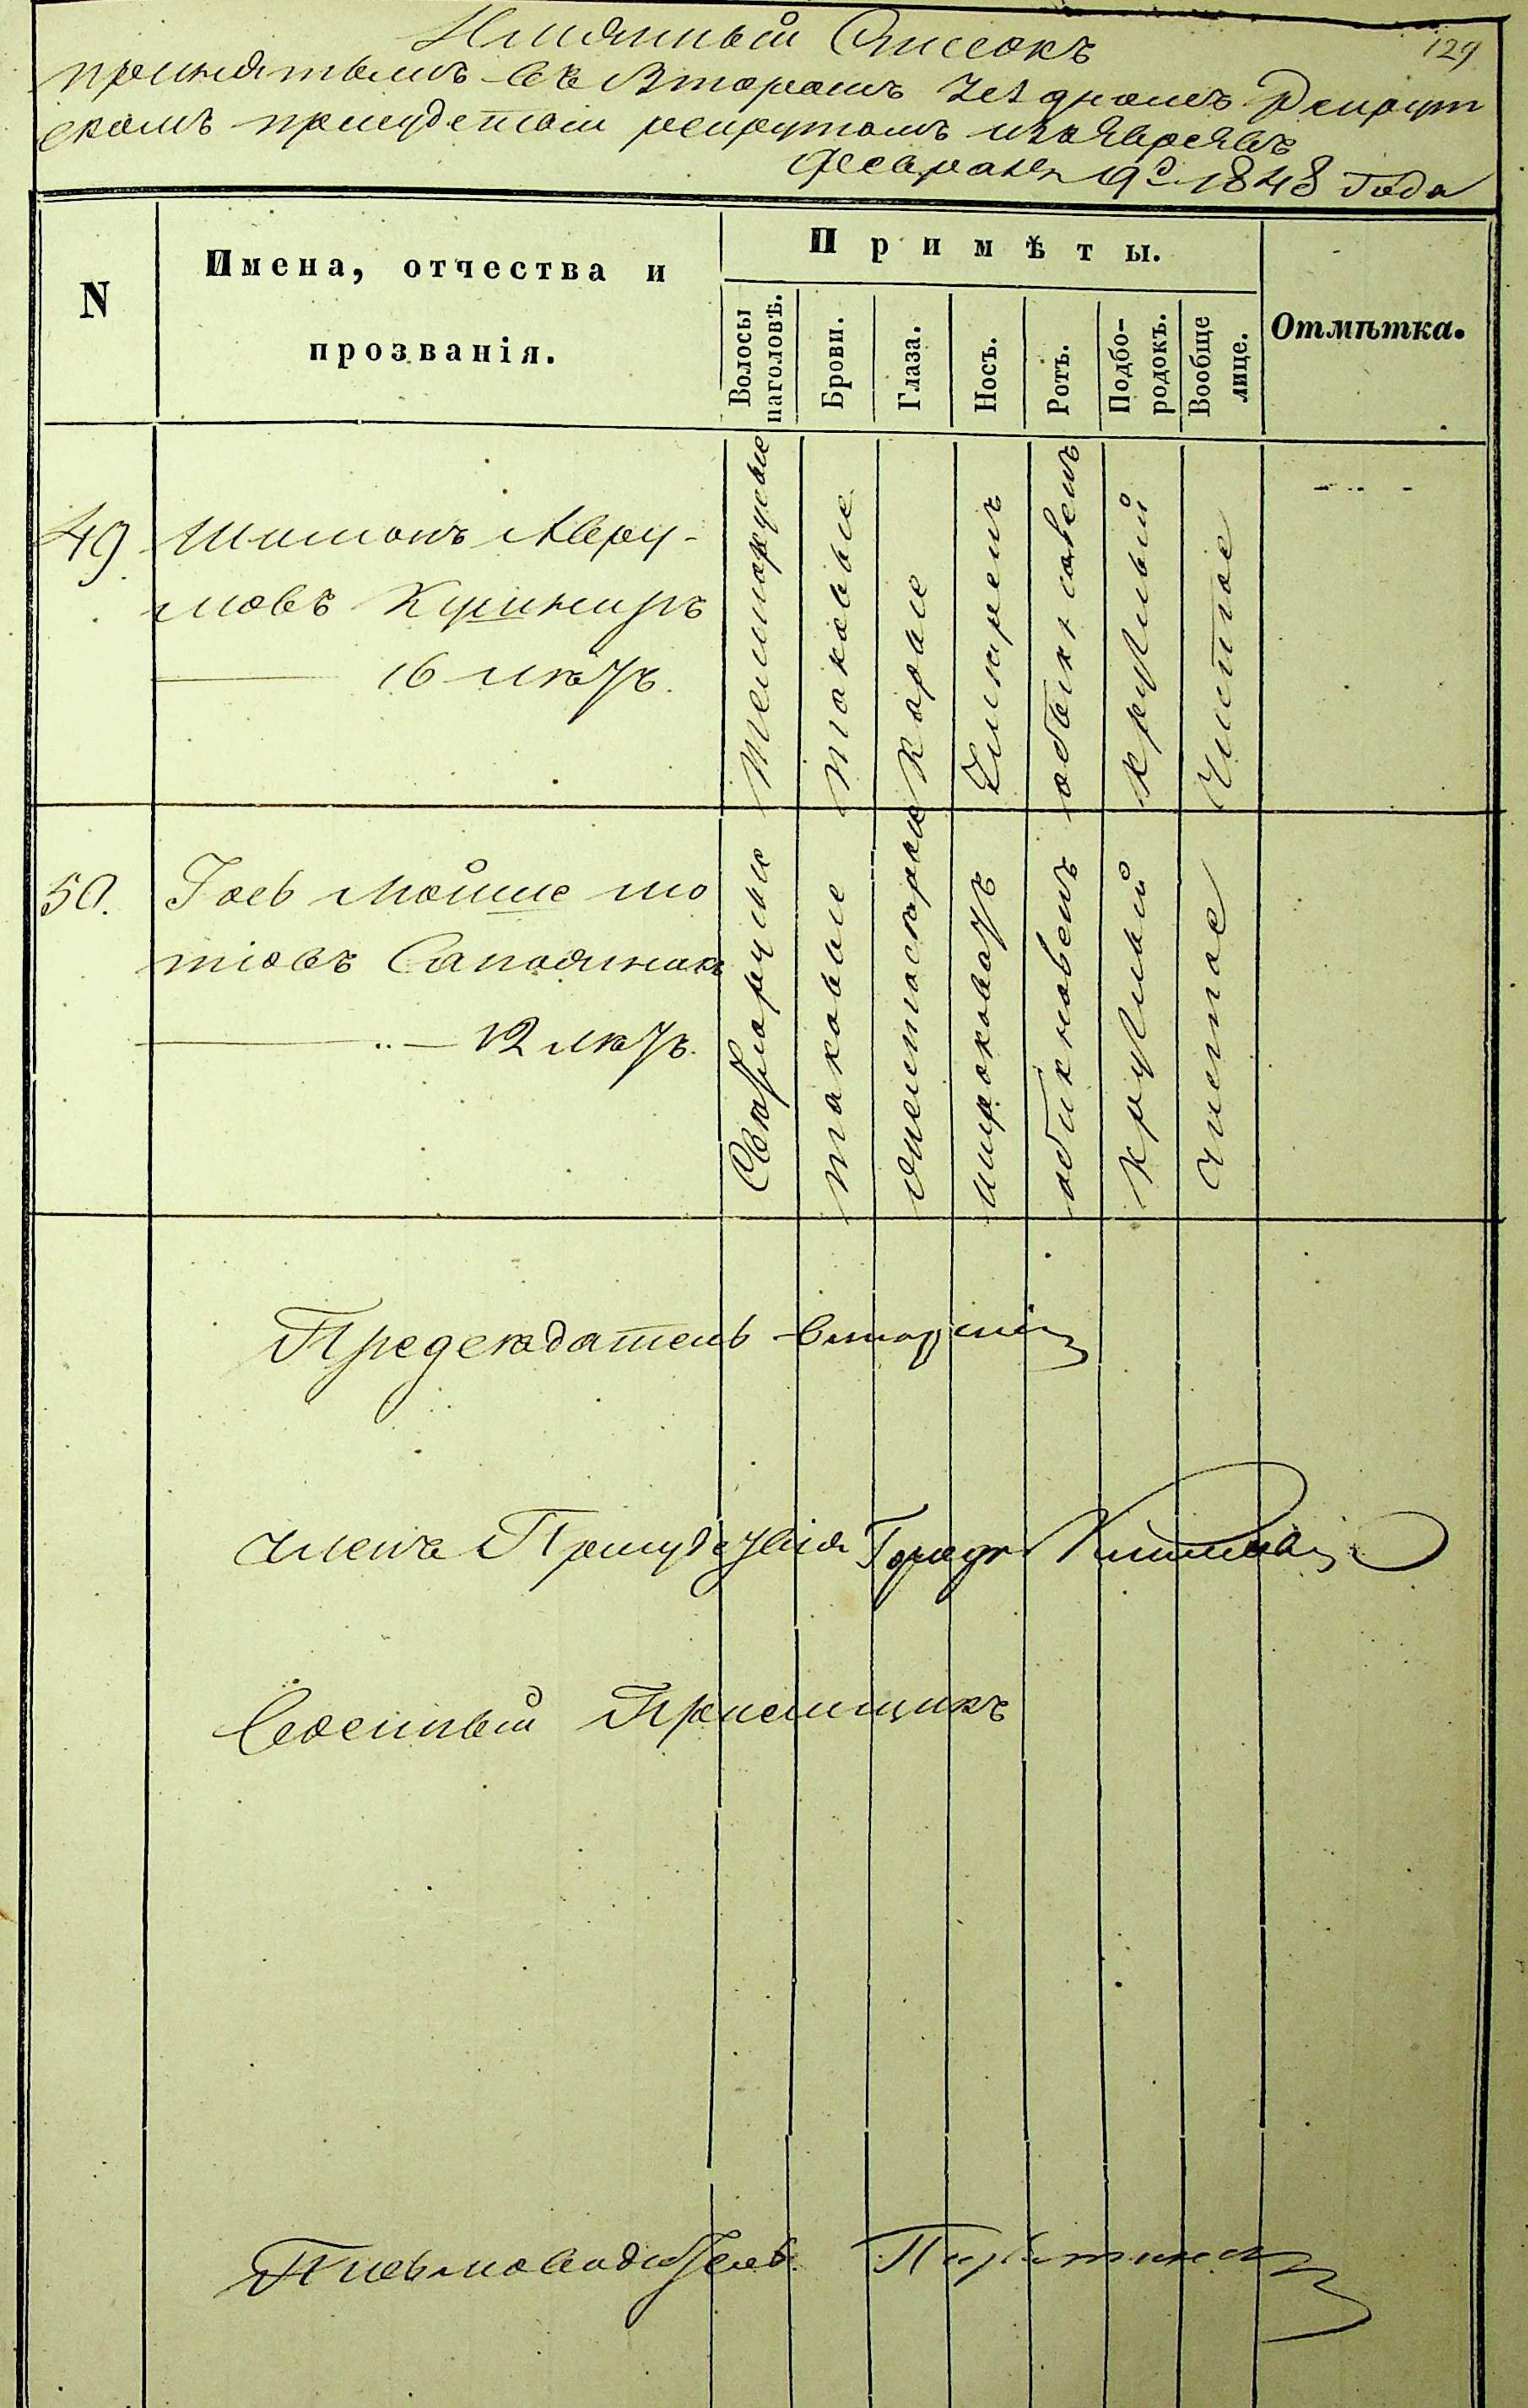 Имянный Списокъ
129
принятымъ въ Второмъ Уездномъ Рекрут
скомъ присудствіи рекрутамъ изъ Евреевъ
Февраля 19д 1848 года
N
Имена, отчества и
прозванія.
Примѣты.
Волосы
наголовѣ.
Брови.
Глаза.
Носъ.
Ротъ.
Подбо-
родокъ.
Вообще
лице.
Отмѣтка.
49
Шимонъ Авру-
мовъ Кушниръ
16 лѣтъ.
Темнорусые
таковые
Карые
Умѣрен
обыкновен
круглый
Чистое
50.
Мойше Мо
тіовъ Сапожникъ
12 лѣтъ.
Свѣтлорусые
таковые
широковатъ
обикновен
круглый
чистое
Председатель
Члены Присудствія
Военный Пріемщикъ
Письмоводитель